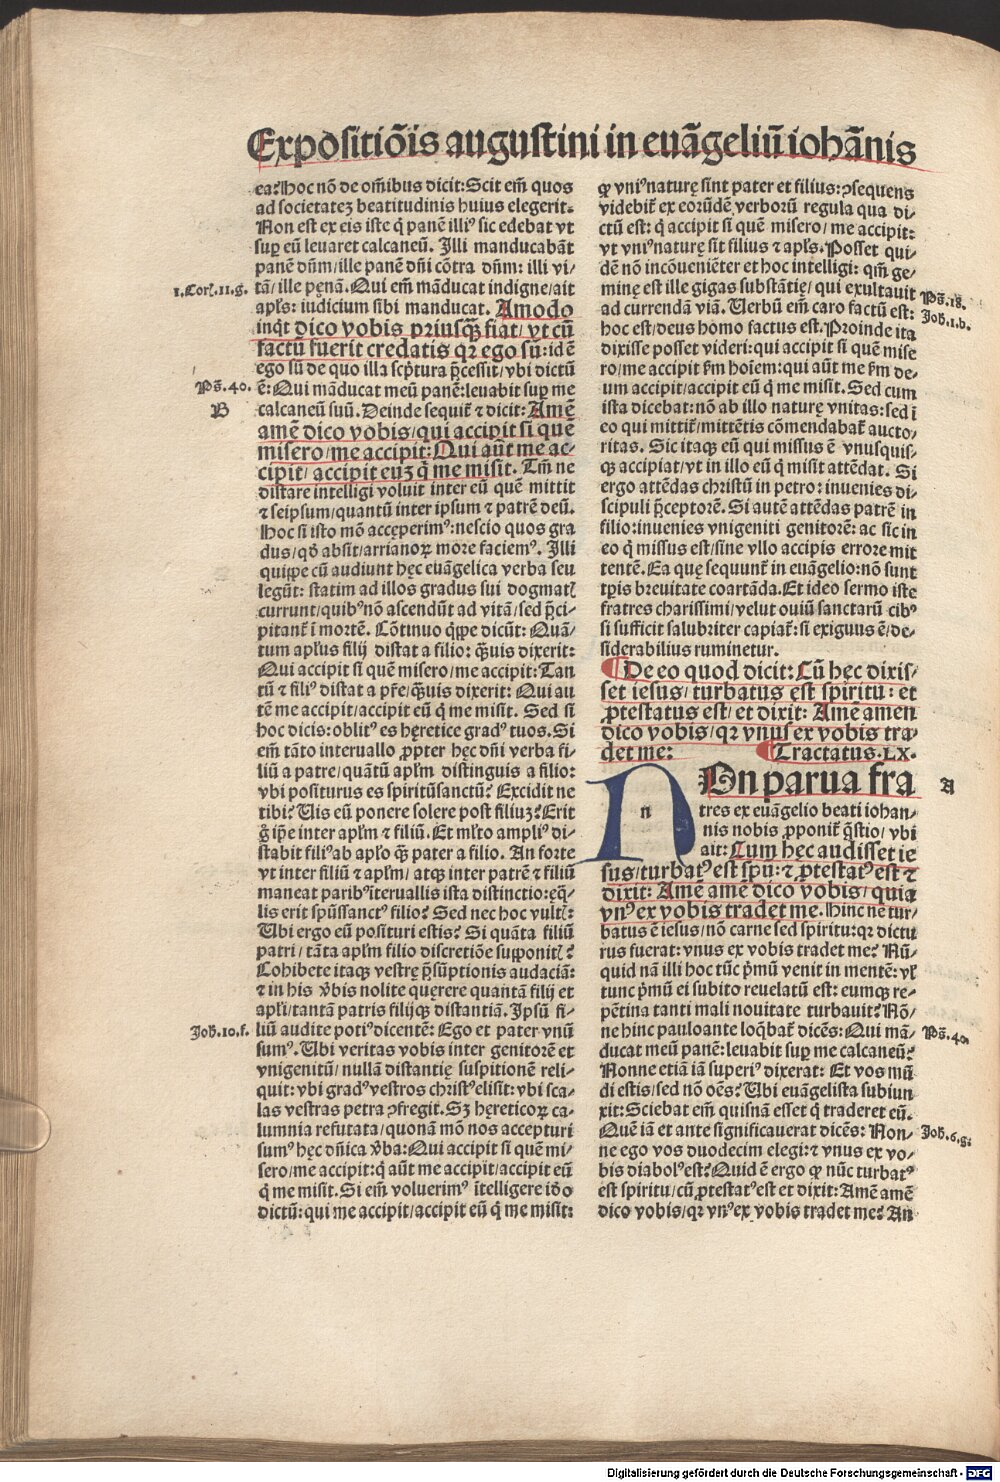 Expositiōis augustini in euāgeliū iohānis
ea? Hoc nō de om̄ibus dicit: Scit em̄ quos
ad societatez beatitudinis huius elegerit.
Non est ex eis iste q̄ panē illi⁹ sic edebat vt
sup̱ eū leuaret calcaneū. Illi manducabāt
panē dn̄m/ille panē dn̄i cōtra dn̄m: illi vi⸗
1.Corī.11.g. tā/ ille pęnā. Qui em̄ māducat indigne/ait
apl̄s: iudicium sibi manducat. Amodo
inq̄t dico vobis priusq̄ꝫ fiat/ vt cū
factū fuerit credatis qꝛ ego sū: idē
ego sū de quo illa scp̄tura p̄cessit/vbi dictū
Ps̄.40. ē: Qui māducat meū panē: leuabit sup̱ me
B calcaneū suū. Deinde sequit̄ ⁊ dicit: Amē
amē dico vobis/qui accipit si quē
misero/me accipit: Qui aūt me ac⸗
cipit/ accipit euꝫ q̄ me misit. Tm̄ ne
distare intelligi voluit inter eū quē mittit
⁊ seipsum/quantū inter ipsum ⁊ patrē deū.
Hoc si isto mō accęperim⁹: nescio quos gra
dus/qđ absit/arrianoꝝ more faciem⁹. Illi
quip̱pe cū audiunt hęc euāgelica verba seu
legūt: statim ad illos gradus sui dogmatꝭ
currunt/quib⁹ nō ascendūt ad vitā/sed p̄ci⸗
pitant̄ ī mortē. Cōtinuo q̄ppe dicūt: Quā⸗
tum apl̄us filij distat a filio: q̄ꝫuis dixerit:
Qui accipit si quē misero/me accipit: Tan
tū ⁊ fili⁹ distat a pr̄e/q̄ꝫuis dixerit: Qui au
tē me accipit/accipit eū q̄ me misit. Sed si
hoc dicis: oblit⁹ es hęretice grad⁹ tuos. Si
em̄ tāto interuallo ꝓpter hęc dn̄i verba fi⸗
liū a patre/quātū apl̄m distinguis a filio:
vbi positurus es spiritūsanctū? Excidit ne
tibi? Uis eū ponere solere post filiuꝫ? Erit
g̊ ip̄e inter apl̄m ⁊ filiū. Et ml̄to ampli⁹ di⸗
stabit fili⁹ ab apl̄o q̄ꝫ pater a filio. An forte
vt inter filiū ⁊ apl̄m/ atqꝫ inter patrē ⁊ filiū
maneat parib⁹ īteruallis ista distinctio: eq̄⸗
lis erit spūssanct⁹ filio? Sed nec hoc vultꝭ:
Ubi ergo eū posituri estis? Si quāta filiū
patri/ tāta apl̄m filio discretiōe supponitꝭ?
Cohibete itaqꝫ vestrę p̄sūptionis audaciā:
⁊ in his v̄bis nolite quęrere quantā filij et
apl̄i/tantām patris filijqꝫ distantiā. Ipsū fi⸗
Joh̄.10.f. liū audite poti⁹ dicentē: Ego et pater vnū
sum⁹. Ubi veritas vobis inter genitorē et
vnigenitū/ nullā distantię suspitionē reli⸗
quit: vbi grad⁹ vestros christ⁹ elisit: vbi sca⸗
las vestras petra ꝯfregit. Sꝫ hęreticoꝝ ca⸗
lumnia refutata/quonā mō nos accepturi
sum⁹ hęc dn̄ica v̄ba: Qui accipit si quē mi⸗
sero/me accipit: q̄ aūt me accipit/accipit eū
q̄ me misit. Si em̄ voluerim⁹ ītelligere iđo
dictū: qui me accipit/accipit eū q̄ me misit:
qꝙ vni⁹ naturę sint pater et filius: ꝯsequens
videbit̄ ex eorūdē verborū regula qua di⸗
ctū est: q̄ accipit si quē misero/ me accipit:
vt vni⁹ naturę sit filius ⁊ apl̄s. Posset qui⸗
dē nō incōueniēter et hoc intelligi: qm̄ ge⸗
minę est ille gigas substātię/ qui exultauit Ps̄.18.
ad currendā viā. Uerbū em̄ caro factū est: Joh̄.1.b.
hoc est/deus homo factus est. Proinde ita
dixisse posset videri: qui accipit si quē mise
ro/me accipit ẜm hoīem: qui aūt me ẜm de⸗
um accipit/accipit eū q̄ me misit. Sed cum
ista dicebat: nō ab illo naturę vnitas: sed ī
eo qui mittit̄/mittētis cōmendabat̄ aucto⸗
ritas. Sic itaqꝫ eū qui missus ē vnusquis⸗
qꝫ accipiat/vt in illo eū q̄ misit attēdat. Si
ergo attēdas christū in petro: inuenies di⸗
scipuli p̄ceptorē. Si autē attēdas patrē in
filio: inuenies vnigeniti genitorē: ac sic in
eo q̄ missus est/sine vllo accipis errore mit
tentē. Ea quę sequunt̄ in euāgelio: nō sunt
tp̄is breuitate coartāda. Et ideo sermo iste
fratres charissimi/velut ouiū sanctarū cib⁹
si sufficit salubriter capiat̄: si exiguus ē/de⸗
siderabilius ruminetur.
¶De eo quod dicit: Cū hęc dixis⸗
set iesus/ turbatus est spiritu: et
ꝓtestatus est/ et dixit: Amē amen
dico vobis/qꝛ vnus ex vobis tra⸗
det me: ¶Tractatus.LX.
n NOn parua fra A
tres ex euāgelio beati iohan⸗
nis nobis ꝓponit̄ q̄stio/ vbi
ait: Cum hęc audisset ie
sus/turbat⁹ est spū: ⁊ ꝓtestat⁹ est ⁊
dixit: Amē amē dico vobis/ quia
vn⁹ ex vobis tradet me. Hinc ne tur⸗
batus ē iesus/nō carne sed spiritu: qꝛ dictu
rus fuerat: vnus ex vobis tradet me? Nū⸗
quid nā illi hoc tūc p̄mū venit in mentē: vl̄
tunc p̄mū ei subito reuelatū est: eumqꝫ re⸗
pētina tanti mali nouitate turbauit? Nō⸗
ne hinc pauloante loq̄bat̄ dicēs: Qui mā⸗ Ps̄.40.
ducat meū panē: leuabit sup̱ me calcaneū?
Nonne etiā iā superi⁹ dixerat: Et vos mū
di estis/sed nō oēs? Ubi euāgelista subiun
xit: Sciebat em̄ quisnā esset q̄ traderet eū.
Quē iā et ante significauerat dicēs: Non⸗ Joh̄.6.g.
ne ego vos duodecim elegi: ⁊ vnus ex vo⸗
bis diabol⁹ est? Quid ē ergo ꝙ nūc turbat⁹
est spiritu/ cū ꝓtestat⁹ est et dixit: Amē amē
dico vobis/qꝛ vn⁹ ex vobis tradet me? An
Digitalisierung gefördert durch die Deutsche Forschungsgemeinschaft - DFG